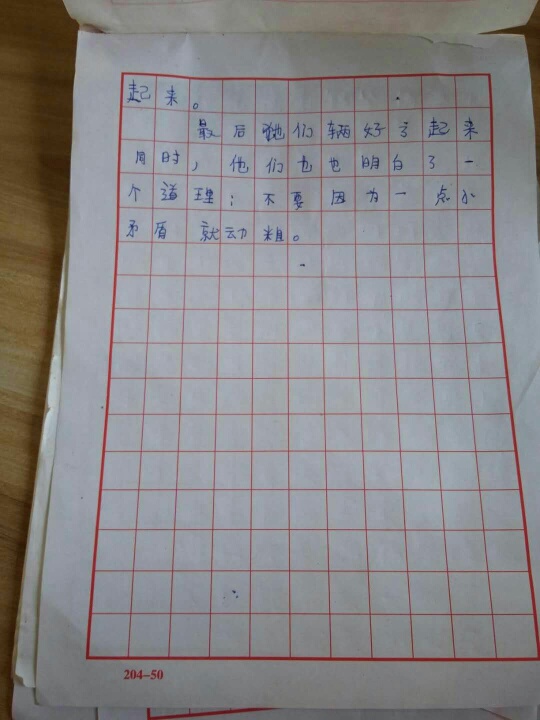 起来。
最后她们辆好了起来
同时,他们也也明白了一
个道理:不要因为一点小
矛盾就动粗。
204-50